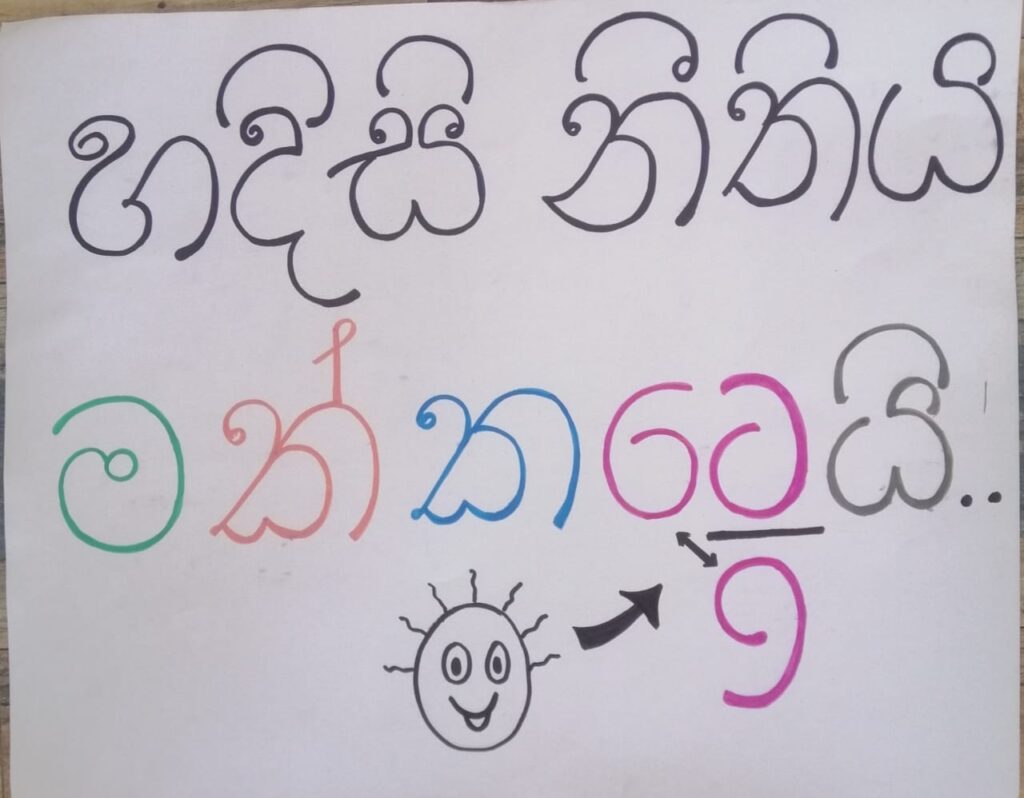 හදිසි නීතිය
මක්කටෙයි..
ඉ